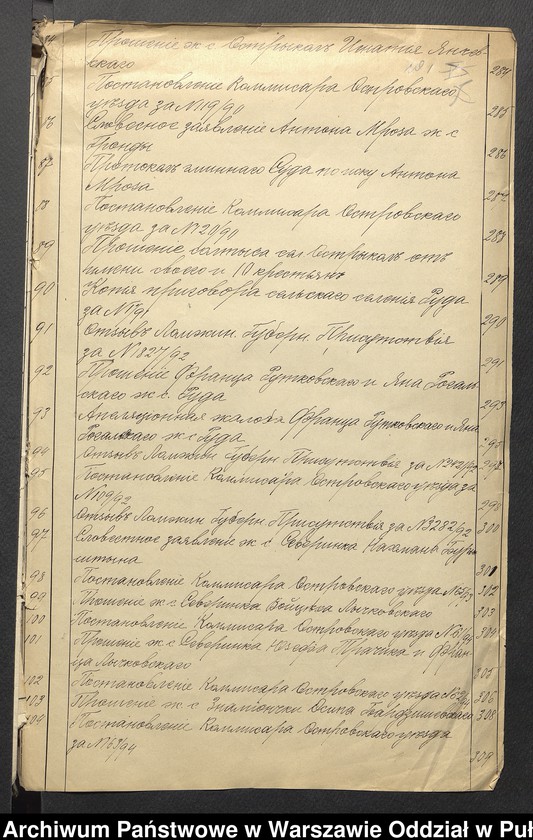 84 Прошеніе ж. с. Острыкалъ Игнатія Янков-
скаго 284
85 Постановленіе Коммисара Островскаго
уѣзда за № 19/90 285
86 Словесное заявленіе Антона Мроза ж. с.
Гронды 286
87 Протоколъ гминнаго Суда по иску Антона
Мроза 287
88 Постановленіе Коммисара Островскаго
уѣзда за № 20/90 288
89 Прошеніе солтыса сел. Острыкалъ отъ
имени своего и 10 крестьянъ 289
90 Копія приговора сельскаго селенія Руда
за № 290
91 Отзывъ Ломжин. Губерн. Присутствія
за № 1827/92 291
92 Прошеніе Франца Рутковскаго и Яна Рогаль-
скаго ж. с. Руда 293
93 Апеляціонная жалоба Франца Рутковскаго и Яна
Рогальскаго ж. с. Руда
94 Отзывъ Ломжин. Губерн. Присутствія за № 298
95 Постановленіе Коммисара Островскаго уѣзда за
№ 119/92 299
96 Отзывъ Ломжин. Губерн. Присутствія за № 3282/92 300
97 Словестное заявленіе ж. с. Северинка Нахмана Бур-
штына 301
98 Постановленіе Коммисара Островскаго уѣзда № 302
99 Прошеніе ж. с. Северинка Войцѣха Лычковскаго 303
100 Постановленіе Коммисара Островскаго уѣзда № 304
101 Прошеніе ж. с. Северинка Іозефа Трачика и Фран-
ца Лычковскаго 305
102 Постановленіе Коммисара Островскаго уѣзда № 306
103 Прошеніе ж. с. Осипа 308
104 Постановленіе Коммисара Островскаго уѣзда
за № 63/94 309
Archiwum Państwowe w Warszawie Oddział w Puł